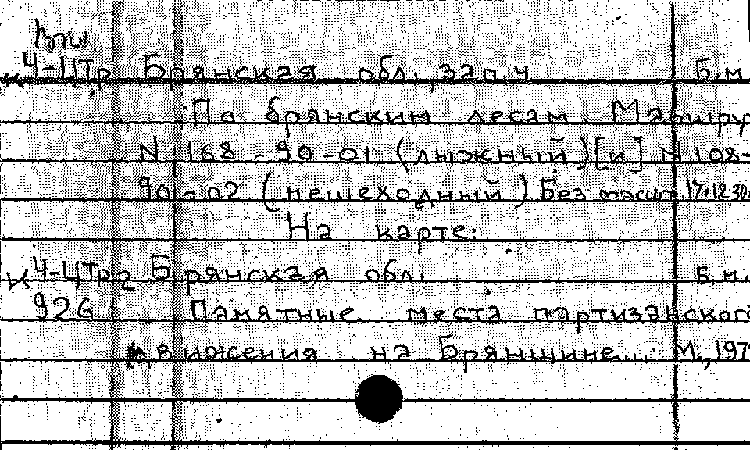 К Ч-ЦТр Брянская обл., зап. ч. Б.м.
По брянским лесам. Маршру
N 168-90-01 (лыжный) [и] N 168-
90-02 (пешеходный) Без масшт. 17,12
На карте:
К Ч-ЦТр2 Брянская обл. Б.м.
926 Памятные места партизанского
движения на Брянщине... М., 197